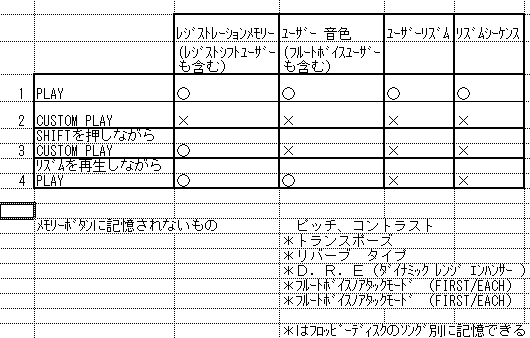 ﾚｼﾞｽﾄﾚｰｼｮﾝﾒﾓﾘｰ ﾕｰｻﾞｰ 音色 ﾕｰｻﾞｰﾘｽﾞﾑ ﾘｽﾞﾑｼｰｹﾝｽ
(ﾚｼﾞｽﾄｼﾌﾄﾕｰｻﾞｰ (ﾌﾙｰﾄﾎﾞｲｽﾕｰｻﾞｰ
も含む) も含む)
1 PLAY ○ ○ ○ ○
2 CUSTOM PLAY × × × ×
SHIFTを押しながら
3 CUSTOM PLAY ○ × × ×
ﾘｽﾞﾑを再生しながら
4 PLAY ○ ○ × ×
ﾒﾓﾘｰﾎﾞﾀﾝに記憶されないもの ピッチ、コントラスト
＊トランスポーズ
＊リバーブ タイプ
＊Ｄ．Ｒ．Ｅ(ﾀﾞｲﾅﾐｯｸ ﾚﾝｼﾞ ｴﾝﾊﾝｻｰ )
＊ﾌﾙｰﾄﾎﾞｲｽ/ｱﾀｯｸﾓｰﾄﾞ (FIRST/EACH)
＊ﾌﾙｰﾄﾎﾞｲｽ/ｱﾀｯｸﾓｰﾄﾞ (FIRST/EACH)
＊はﾌﾛｯﾋﾟｰﾃﾞｨｽｸのｿﾝｸﾞ別に記憶できる